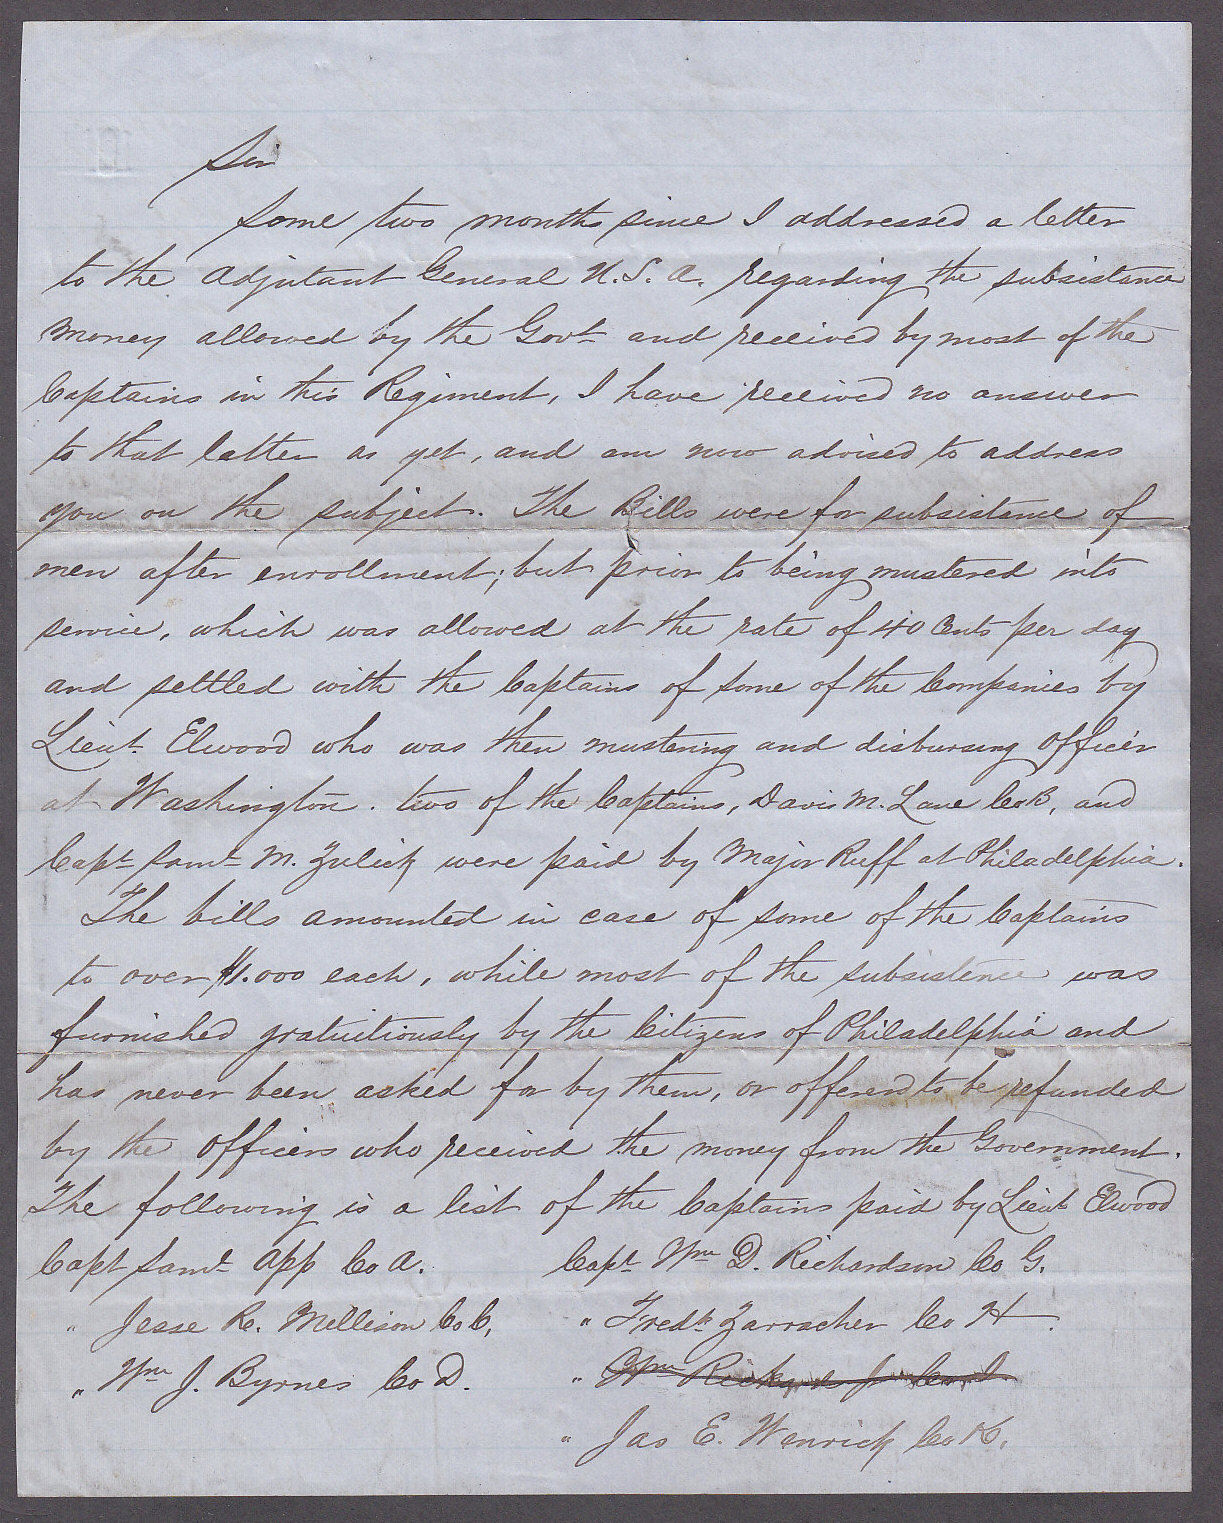 Sir
Some two months since I addressed a letter
to the Adjutant General U.S.A. regarding the subsistance
money allowed by the Govt and received by most of the
Captains in this Regiment, I have received no answer
to that letter as yet, and am now advised to address
you on the subject. The Bills were for subsistence of
men after enrollment; but prior to being mustered into
service, which was allowed at the rate of 40 Cents per day
and settled with the Captains of some of the Companies by
Lieut Elwood who was then mustering and disbursing officer
at Washington. two of the Captains, Davis M. Lane Co B, and
Capt Saml M. Zulick were paid by Major Ruff at Philadelphia.
The bills amounted in case of some of the Captains
to over $1.000 each, while most of the subsistence was
furnished gratuitiously by the Citizens of Philadelphia and
has never been asked for by them, or offered to be refunded
by the officers who received the money from the Government.
The following is a list of the Captains paid by Lieut Elwood
Capt Saml App Co A. Capt Wm D. Richardson Co G.
" Jesse R. Mellison Co C, " Fredk Zarracher Co H.
" Wm J. Byrnes Co D. " Wm Rickards Jr Co I
" Jas E. Wenrick Co K,